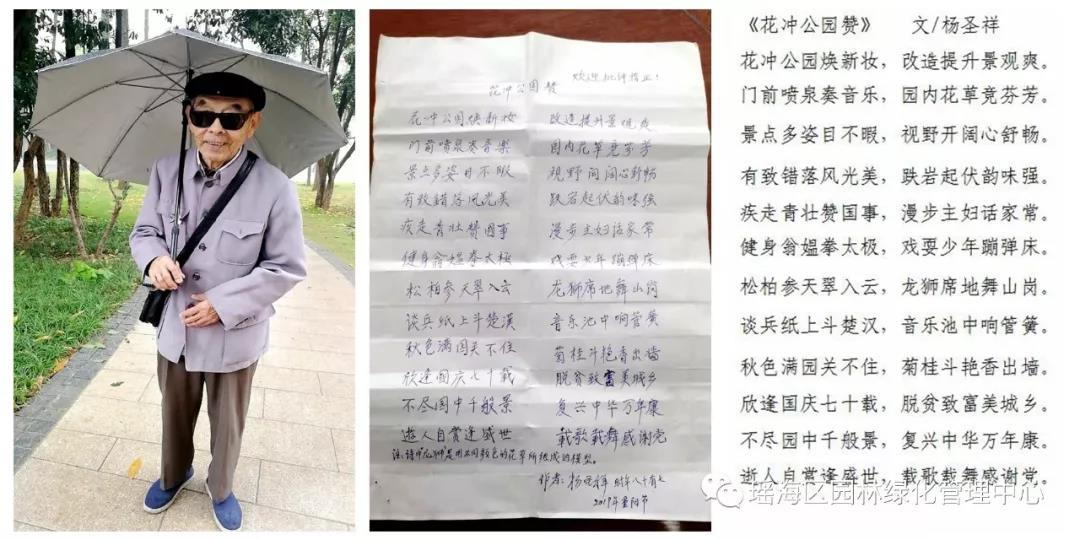 欢迎批评指正!
花冲公园赞
花冲公园焕新妆 改造提升景观爽
门前喷泉奏音乐 园内花草竞芬芳
景点多姿目不暇 视野开阔心舒畅
有致错落风光美 跌岩起伏韵味强
疾走青壮赞国事 漫步主妇话家常
健身翁媪拳太极 戏耍少年蹦弹床
松柏参天翠入云 龙狮席地舞山岗
谈兵纸上斗楚汉 音乐池中响管簧
秋色满园关不住 菊桂斗艳香出墙
欣逢国庆七十载 脱贫致富美城乡
不尽园中千般景 复兴中华万年康
逝人自赏逢盛世 载歌载舞感谢党
注:诗中龙狮是用不同颜色的花草所组成的模型。
作者:杨圣祥 时年八十有七
2019年重阳节
《花冲公园赞》 文/杨圣祥
花冲公园焕新妆,改造提升景观爽。
门前喷泉奏音乐,园内花草竞芬芳。
景点多姿目不暇,视野开阔心舒畅。
有致错落风光美,跌岩起伏韵味强。
疾走青壮赞国事,漫步主妇话家常。
健身翁媪拳太极,戏耍少年蹦弹床。
松柏参天翠入云,龙狮席地舞山岗。
谈兵纸上斗楚汉,音乐池中响管簧。
秋色满园关不住,菊桂斗艳香出墙。
欣逢国庆七十载,脱贫致富美城乡。
不尽园中千般景,复兴中华万年康。
逝人自赏逢盛世,载歌载舞感谢党。
瑶海区园林绿化管理中心